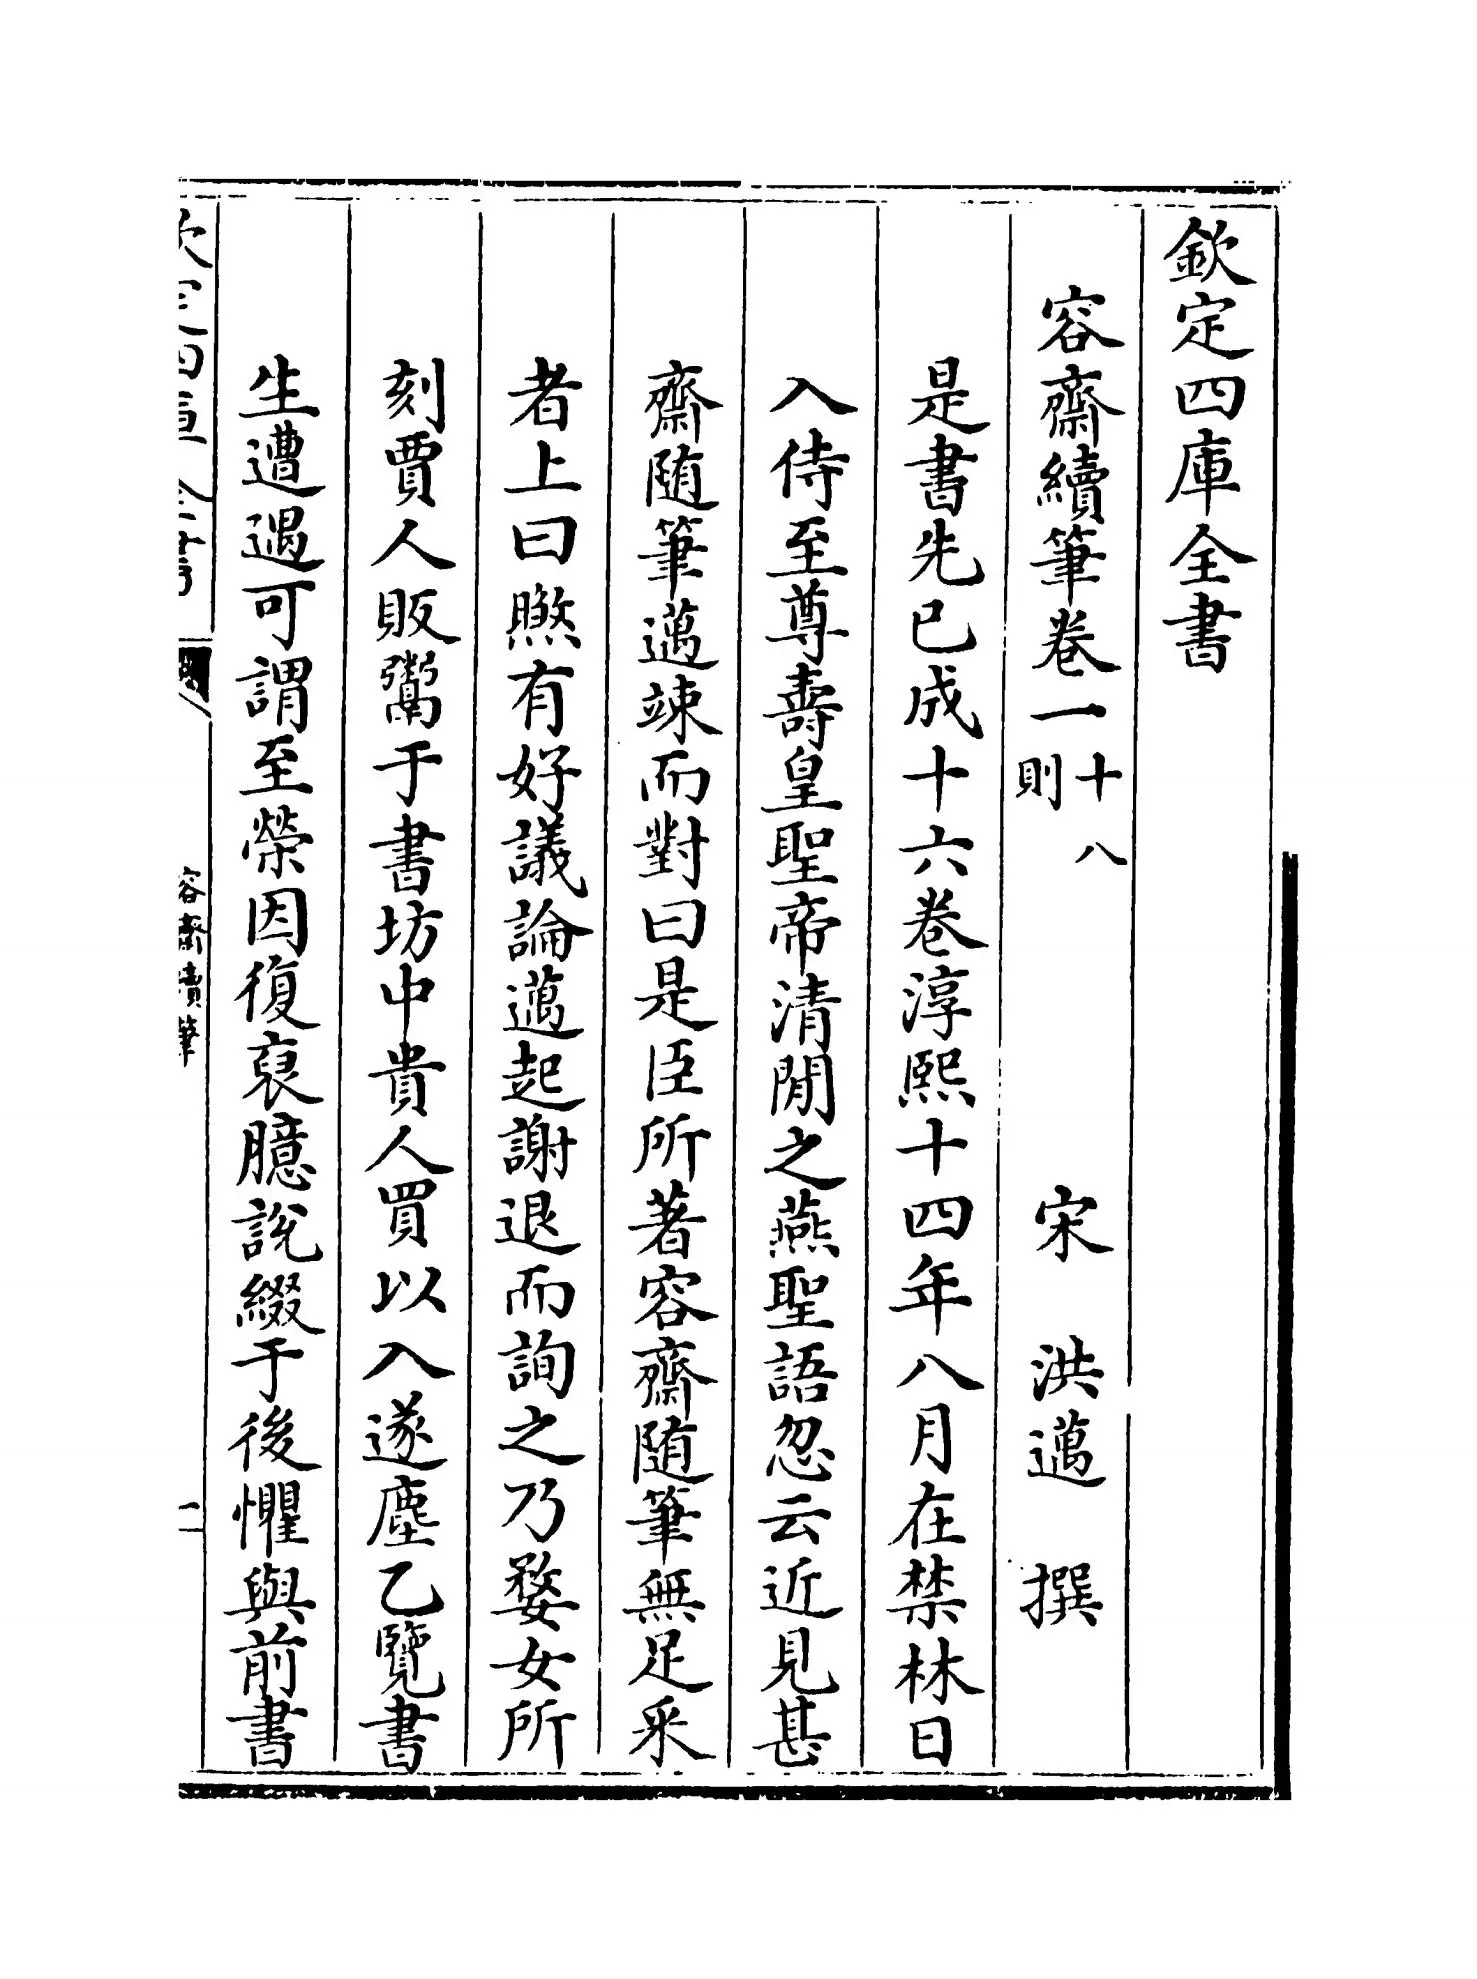 欽定四庫全書
容齋續筆卷一十八則　宋　洪邁　撰
是書先已成十六卷淳熙十四年八月在禁林日
入侍至尊壽皇聖帝清閒之燕聖語忽云近見甚
齋隨筆邁竦而對曰是臣所著容齋隨筆無足采
者上曰㬗有好議論邁起謝退而詢之乃婺女所
刻賈人販鬻于書坊中貴人買以入遂塵乙覽書
生遭遇可謂至榮因復裒臆說綴于後懼與前書
欽定四庫全書
容齋續筆